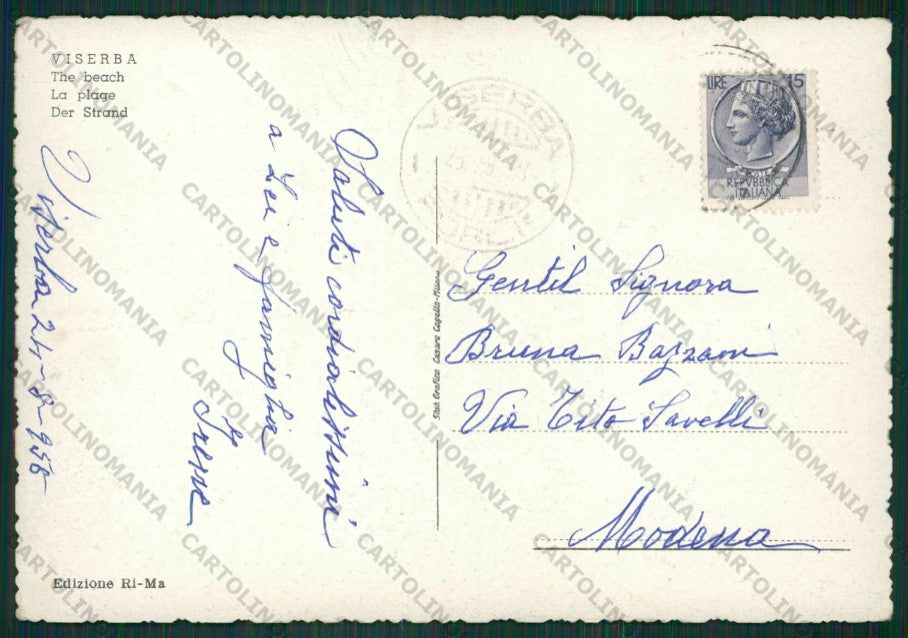 VISERBA
The beach
La plage
Der Strand
Viserba 24-8-958
Saluti cordialissimi
a Lei e famiglia
Irene
Edizione Ri-Ma
Stab. Grafico Cesare Capello-Milano
VISERBA
LIRE 15
POSTE
REPVBBLICA
ITALIANA
Gentil Signora
Bruna Bazzani
Via Tito Savelli
Modena
CARTOLINOMANIA